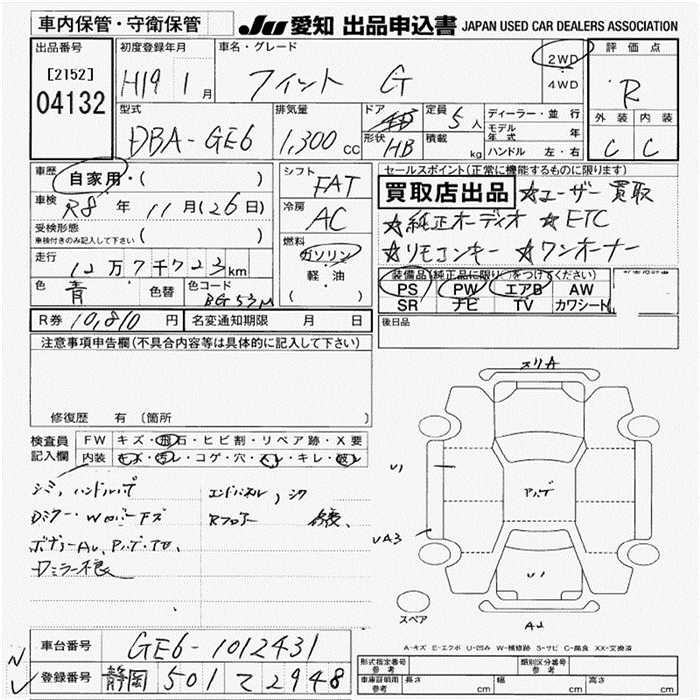 車内保管・守衛保管 JU 愛知 出品申込書 JAPAN USED CAR DEALERS ASSOCIATION
出品番号 [2152] 04132
初度登録年月 H19 1月
車名・グレード フィット G
2WD
4WD
評価点 R
外装 C 内装 C
型式 DBA-GE6
排気量 1,300 cc
ドア
形状 HB
定員 5人
積載 kg
ディーラー・並行
モデル年式 年
ハンドル 左・右
車歴 自家用・( )
車検 R8年 11月(26日)
受検形態 ( )
車検付きのみ記入して下さい
走行 12万7千723km
色 青 色替 色コード BG53M
シフト FAT
冷房 AC
燃料 ガソリン
軽・油
( )
セールスポイント(正常に機能するものに限ります)
買取店出品 ☆ユーザー買取
☆純正オーディオ ☆ETC
☆リモコンキー ☆ワンオーナー
装備品(純正品に限り)○をつけてください
PS PW エアB AW
SR ナビ TV カワシート
後日品
R券 10,810円 名変通知期限 月 日
注意事項申告欄(不具合内容等は具体的に記入して下さい)
修復歴 有(箇所
検査員記入欄 FW キズ・飛石・ヒビ割・リペア跡・X要
内装 キズ・汚レ・コゲ・穴・スレ・キレ・破レ
シミ、ハンドル
エンドパネル、
Rフロアー
ボディーAU、
ミラー不良
スリA
U1
UA3
U1
AU
スペア
A-キズ E-エクボ U-凹み W-補修跡 S-サビ C-腐食 XX-交換済
車台番号 GE6-1012431
登録番号 静岡 501 て 2948
形式指定番号 参考 類別区分番号 参考
車庫証明用 参考 長さ cm 幅 cm 高さ cm